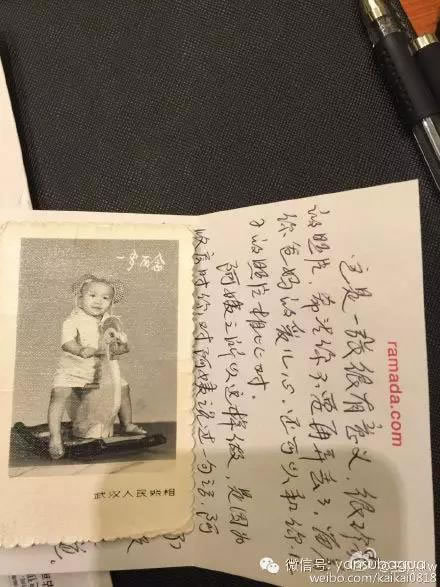 ramada.com
这是一张很有意义、很珍
的照片,希望你不要再弄丢了,留
你爸妈的爱儿心,还可以和你
的照片相比对。
阿姨之所以这样做,是因为
时你对阿姨说过一句话,阿
一岁留念
武汉人民照相
微信号: yansubagua
weibo.com/kaikai0818